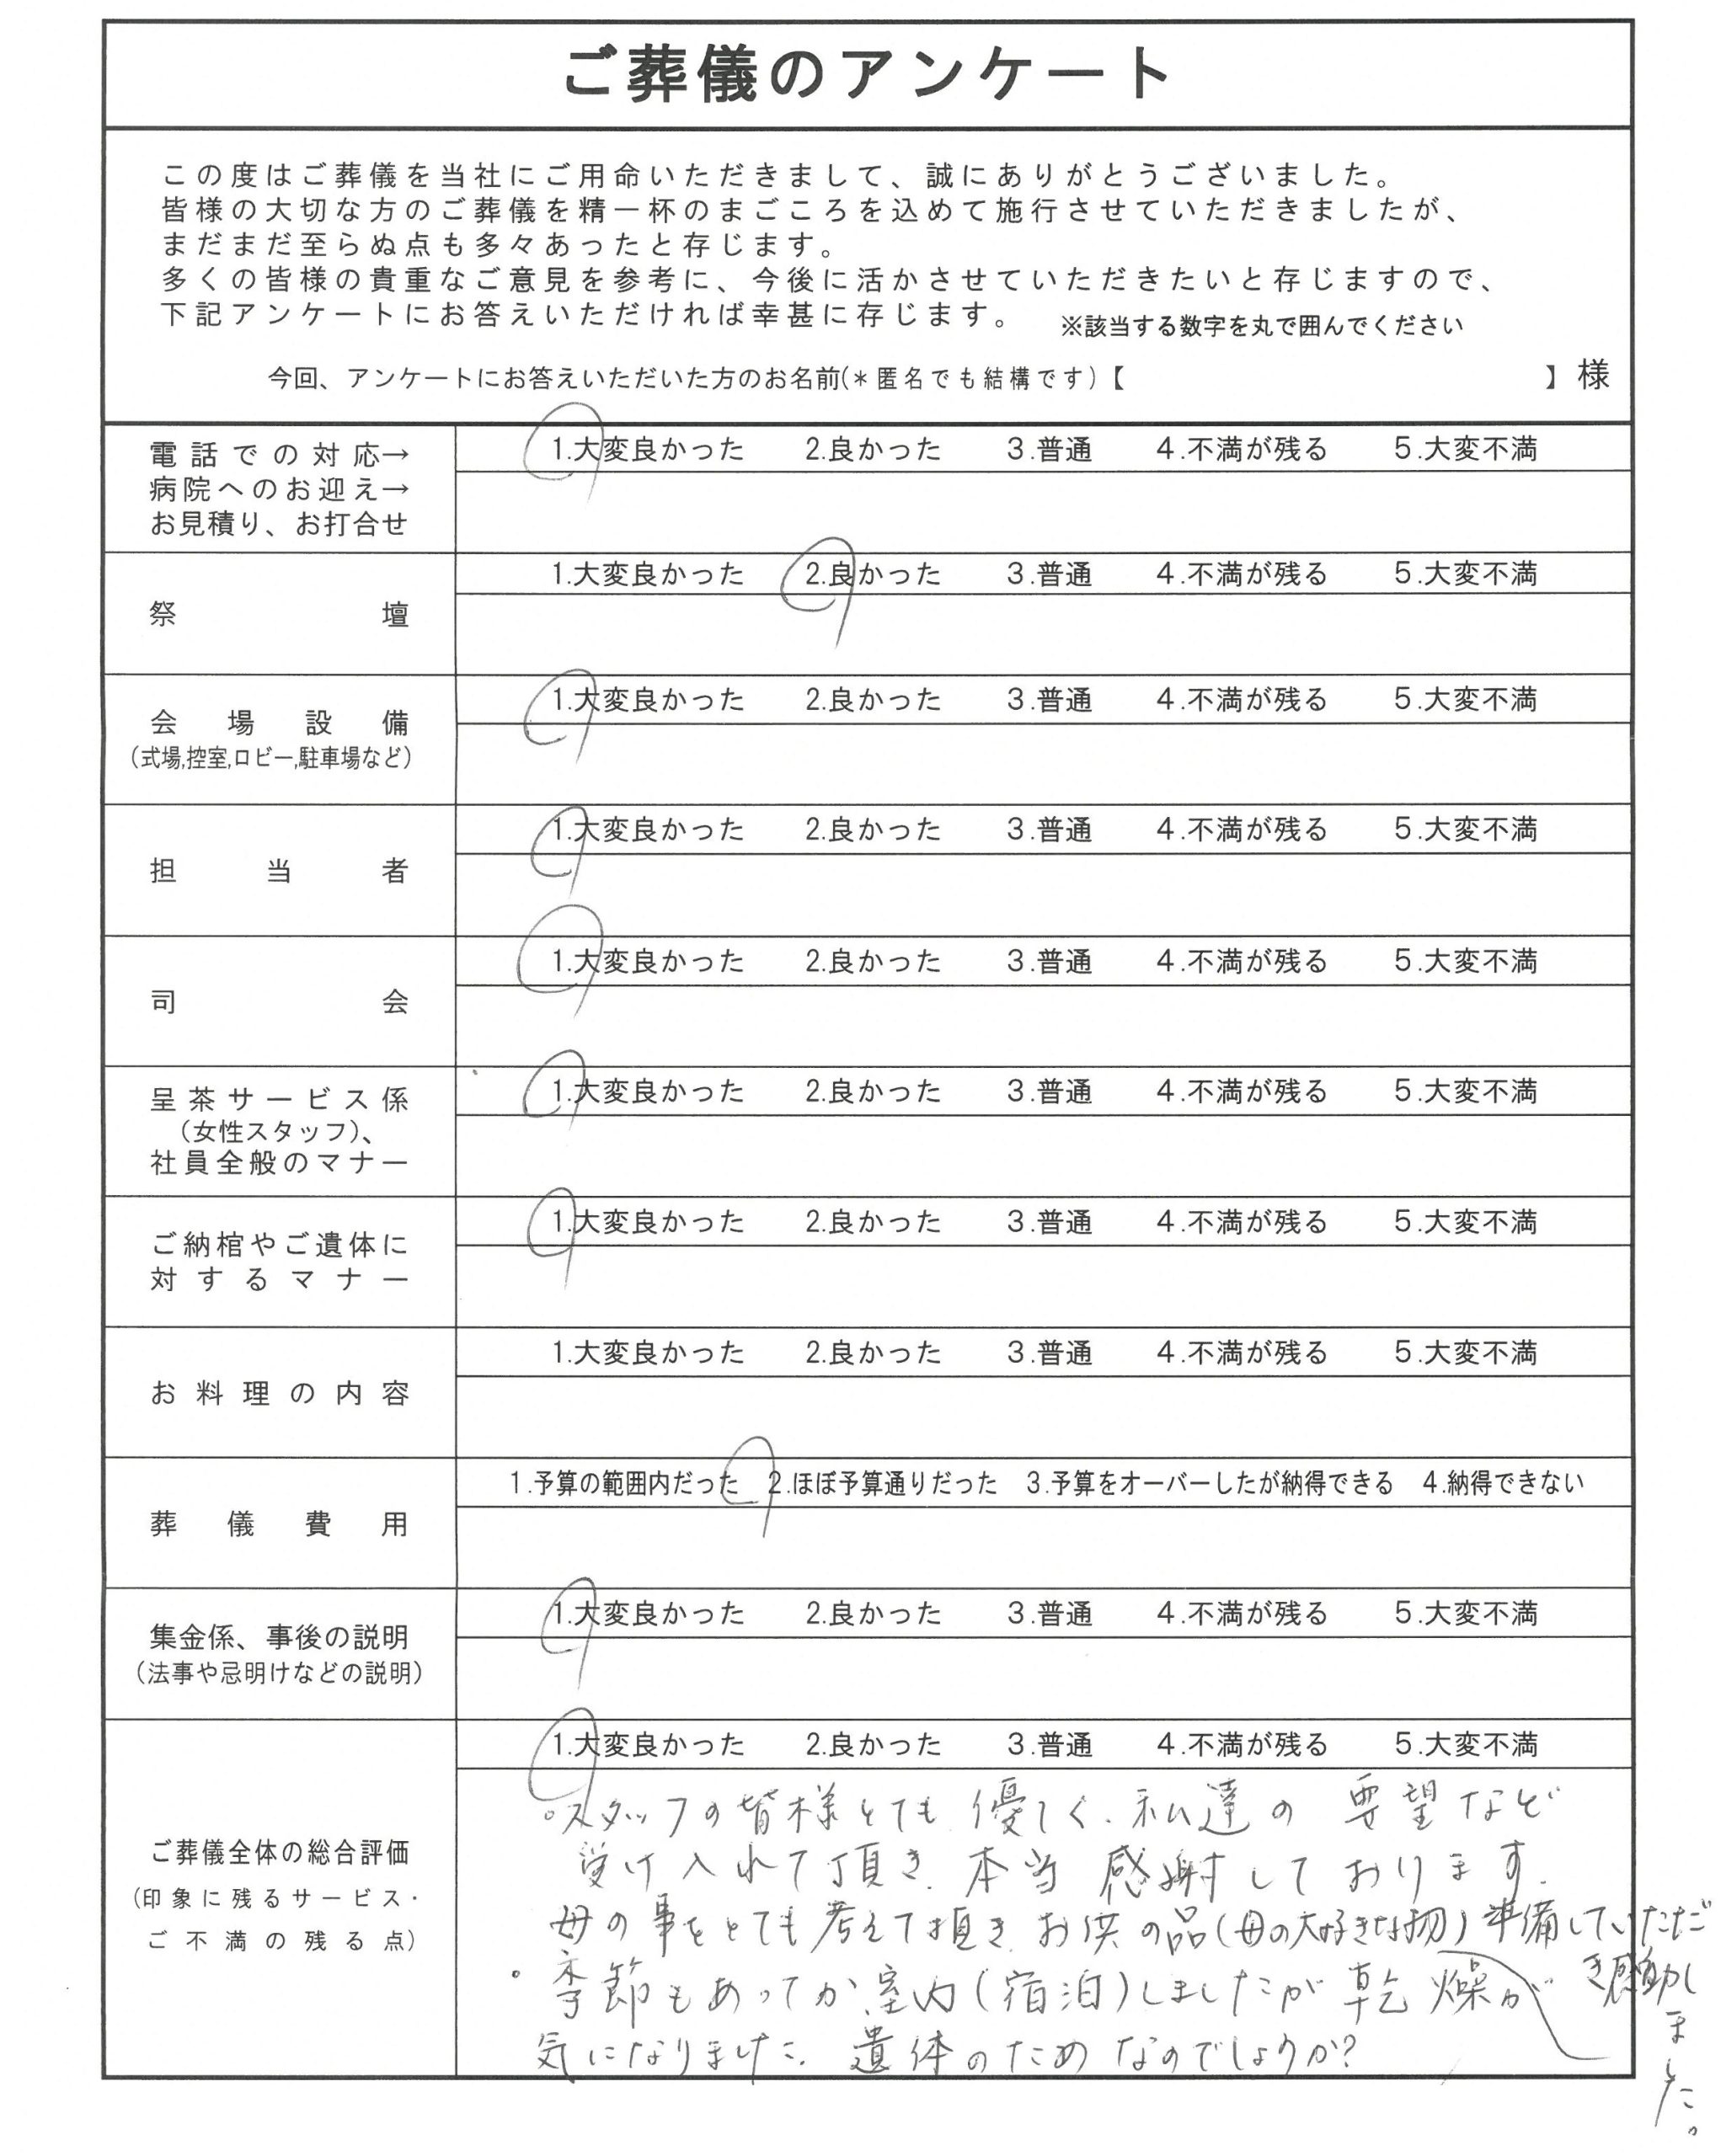 ご葬儀のアンケート
この度はご葬儀を当社にご用命いただきまして、誠にありがとうございました。
皆様の大切な方のご葬儀を精一杯のまごころを込めて施行させていただきましたが、
まだまだ至らぬ点も多々あったと存じます。
多くの皆様の貴重なご意見を参考に、今後に活かさせていただきたいと存じますので、
下記アンケートにお答えいただければ幸甚に存じます。 ※該当する数字を丸で囲んでください
今回、アンケートにお答えいただいた方のお名前(*匿名でも結構です)【 】様
電話での対応→
病院へのお迎え→
お見積り、お打合せ
1.大変良かった 2.良かった 3.普通 4.不満が残る 5.大変不満
祭壇
1.大変良かった 2.良かった 3.普通 4.不満が残る 5.大変不満
会場設備
(式場,控室,ロビー,駐車場など)
1.大変良かった 2.良かった 3.普通 4.不満が残る 5.大変不満
担当者
1.大変良かった 2.良かった 3.普通 4.不満が残る 5.大変不満
司会
1.大変良かった 2.良かった 3.普通 4.不満が残る 5.大変不満
呈茶サービス係
(女性スタッフ)、
社員全般のマナー
1.大変良かった 2.良かった 3.普通 4.不満が残る 5.大変不満
ご納棺やご遺体に
対するマナー
1.大変良かった 2.良かった 3.普通 4.不満が残る 5.大変不満
お料理の内容
1.大変良かった 2.良かった 3.普通 4.不満が残る 5.大変不満
葬儀費用
1.予算の範囲内だった 2.ほぼ予算通りだった 3.予算をオーバーしたが納得できる 4.納得できない
集金係、事後の説明
(法事や忌明けなどの説明)
1.大変良かった 2.良かった 3.普通 4.不満が残る 5.大変不満
ご葬儀全体の総合評価
(印象に残るサービス・
ご不満の残る点)
1.大変良かった 2.良かった 3.普通 4.不満が残る 5.大変不満
・スタッフの皆様とても優しく、私達の要望など
受け入れて頂き、本当感謝しております。
母の事をとても考えて頂き お供の品(母の大好きな物)準備していただ
き感動し
ま
した。
・季節もあってか室内(宿泊)しましたが乾燥が
気になりました。遺体のためなのでしょうか?